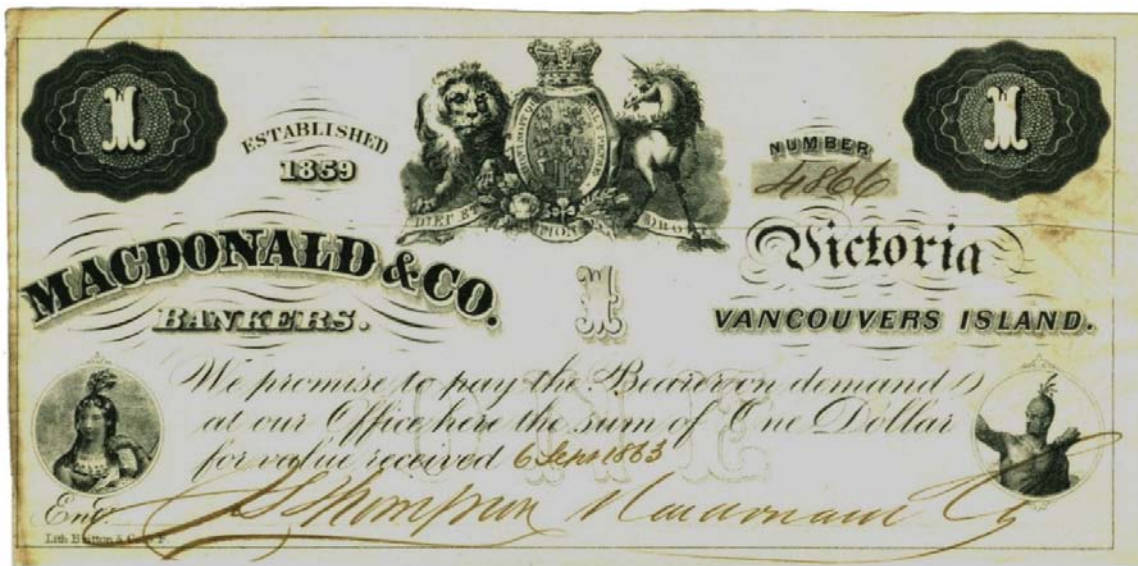 1
1
ESTABLISHED
1859
NUMBER
4866
DIEU ET MON DROIT
MACDONALD & CO.
BANKERS.
1
Victoria
VANCOUVERS ISLAND.
We promise to pay the Bearer on demand
at our Office here the sum of One Dollar
for value received 6 Sept 1863
ONE
Entd.
J S Thompson Macdonald Co
Lith Britton & Co. S. F.